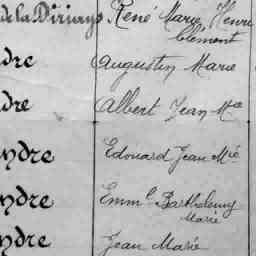 de la Diriays René Marie Henri
Clément
dre Augustin Marie
dre Albert Jean Mie
ndre Edouard Jean Mie
ndre Emm.l Barthelemy
Marie
ndre Jean Marie